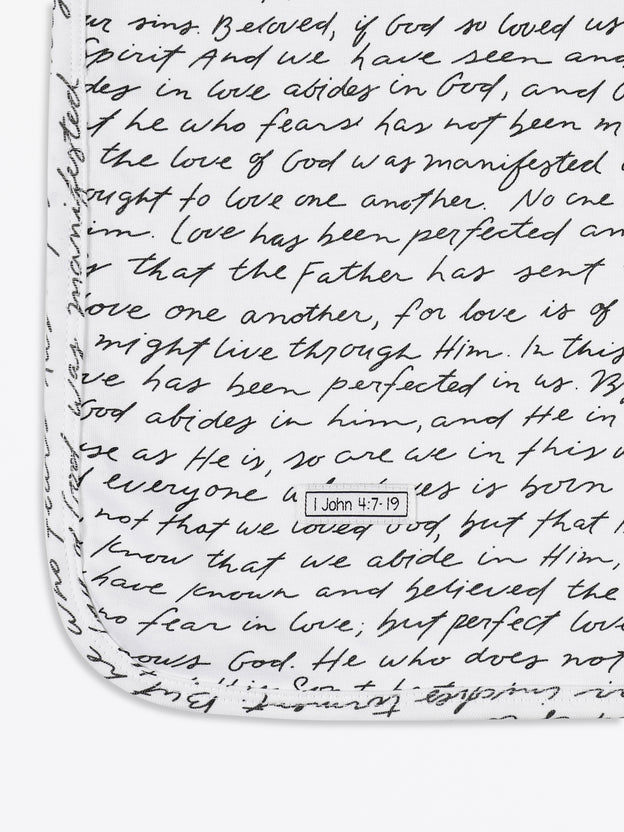 our sins. Beloved, if God so loved us
Spirit And we have seen and
des in love abides in God, and G
t he who fears has not been m
the love of God was manifested
ought to love one another. No one
im. Love has been perfected an
s that the Father has sent
love one another, for love is of
might live through Him. In this
ve has been perfected in us. B
God abides in him, and He in
se as He is, so are we in this w
everyone who loves is born
1 John 4:7-19
not that we loved God, but that
know that we abide in Him,
have known and believed the
no fear in love; but perfect lov
nows God. He who does not
was manifested
involves torment. But he who